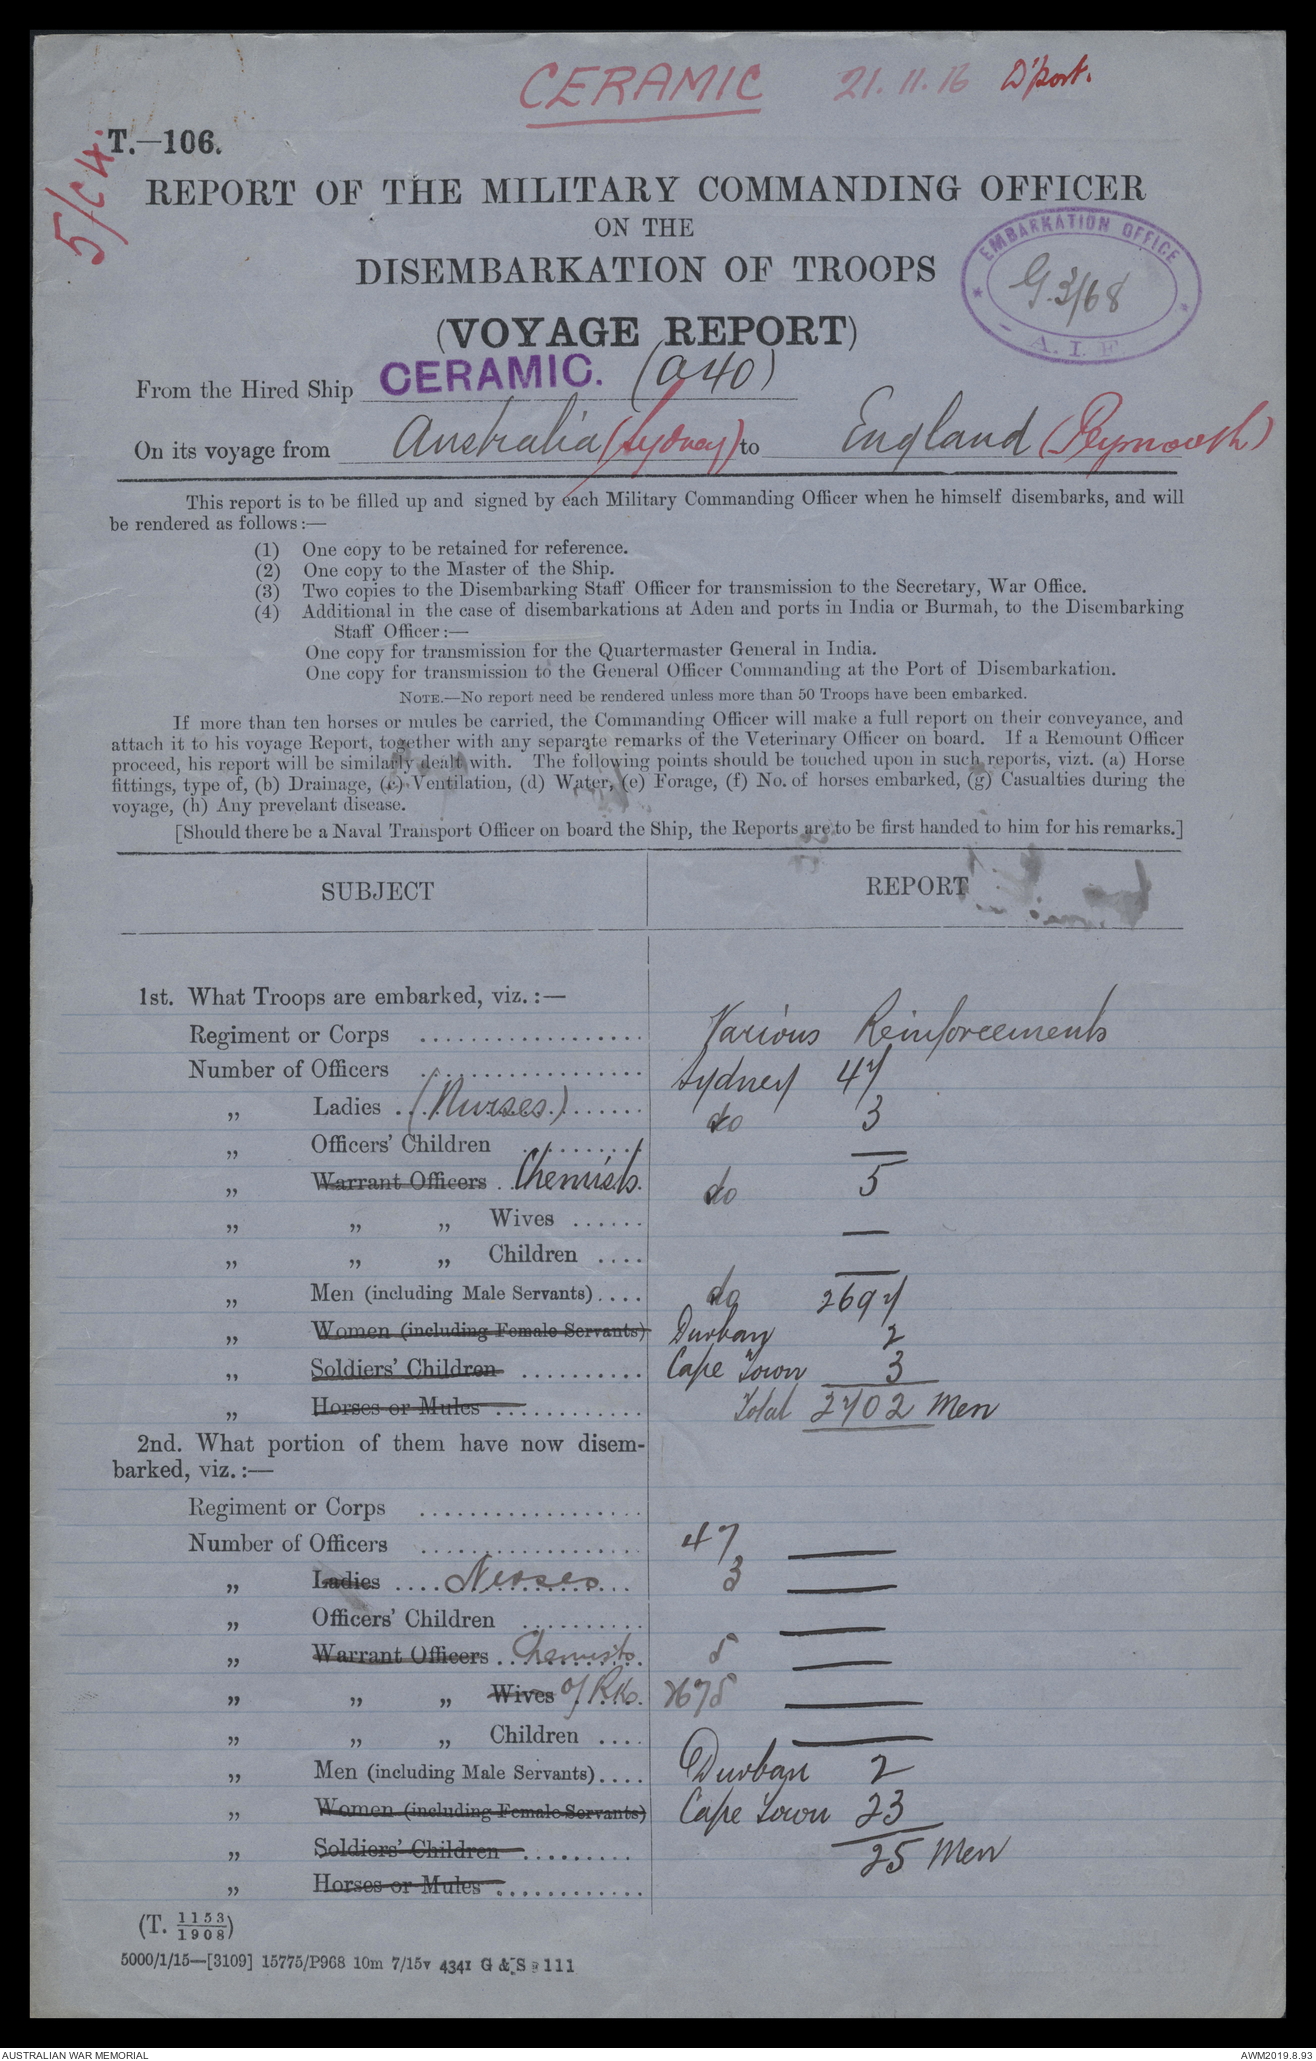 CERAMIC 21.11.16 D'port.
5/C4.
T.—106.
REPORT OF THE MILITARY COMMANDING OFFICER
ON THE
DISEMBARKATION OF TROOPS
EMBARKATION OFFICE
G.3/68
A.I.F.
(VOYAGE REPORT)
From the Hired Ship CERAMIC. (A40)
On its voyage from Australia (Sydney) to England (Plymouth)
This report is to be filled up and signed by each Military Commanding Officer when he himself disembarks, and will
be rendered as follows:—
(1) One copy to be retained for reference.
(2) One copy to the Master of the Ship.
(3) Two copies to the Disembarking Staff Officer for transmission to the Secretary, War Office.
(4) Additional in the case of disembarkations at Aden and ports in India or Burmah, to the Disembarking
Staff Officer:—
One copy for transmission for the Quartermaster General in India.
One copy for transmission to the General Officer Commanding at the Port of Disembarkation.
NOTE.—No report need be rendered unless more than 50 Troops have been embarked.
If more than ten horses or mules be carried, the Commanding Officer will make a full report on their conveyance, and
attach it to his voyage Report, together with any separate remarks of the Veterinary Officer on board. If a Remount Officer
proceed, his report will be similarly dealt with. The following points should be touched upon in such reports, vizt. (a) Horse
fittings, type of, (b) Drainage, (c) Ventilation, (d) Water, (e) Forage, (f) No. of horses embarked, (g) Casualties during the
voyage, (h) Any prevelant disease.
[Should there be a Naval Transport Officer on board the Ship, the Reports are to be first handed to him for his remarks.]
SUBJECT REPORT
1st. What Troops are embarked, viz.:—
Regiment or Corps .................. Various Reinforcements
Number of Officers .................. Sydney 47
„ Ladies ..(Nurses)....... do 3
„ Officers' Children .......... —
„ Warrant Officers .. Chemists. do 5
„ „ „ Wives ...... —
„ „ „ Children .... —
„ Men (including Male Servants).... do 2697
„ Women (including Female Servants) Durban 2
„ Soldiers' Children .......... Cape Town 3
„ Horses or Mules ............ Total 2702 Men
2nd. What portion of them have now disem-
barked, viz.:—
Regiment or Corps ..................
Number of Officers .................. 47 —
„ Ladies .... Nurses ... 3 —
„ Officers' Children .......... —
„ Warrant Officers .. Chemists 5 —
„ „ „ Wives of R&c. 2675 —
„ „ „ Children .... —
„ Men (including Male Servants).... Durban 2
„ Women (including Female Servants) Cape Town 23
„ Soldiers' Children ......... 25 Men
„ Horses or Mules ............
(T. 1153/1908)
5000/1/15—[3109] 15775/P968 10m 7/15v 4341 G & S 111
AUSTRALIAN WAR MEMORIAL AWM2019.8.93